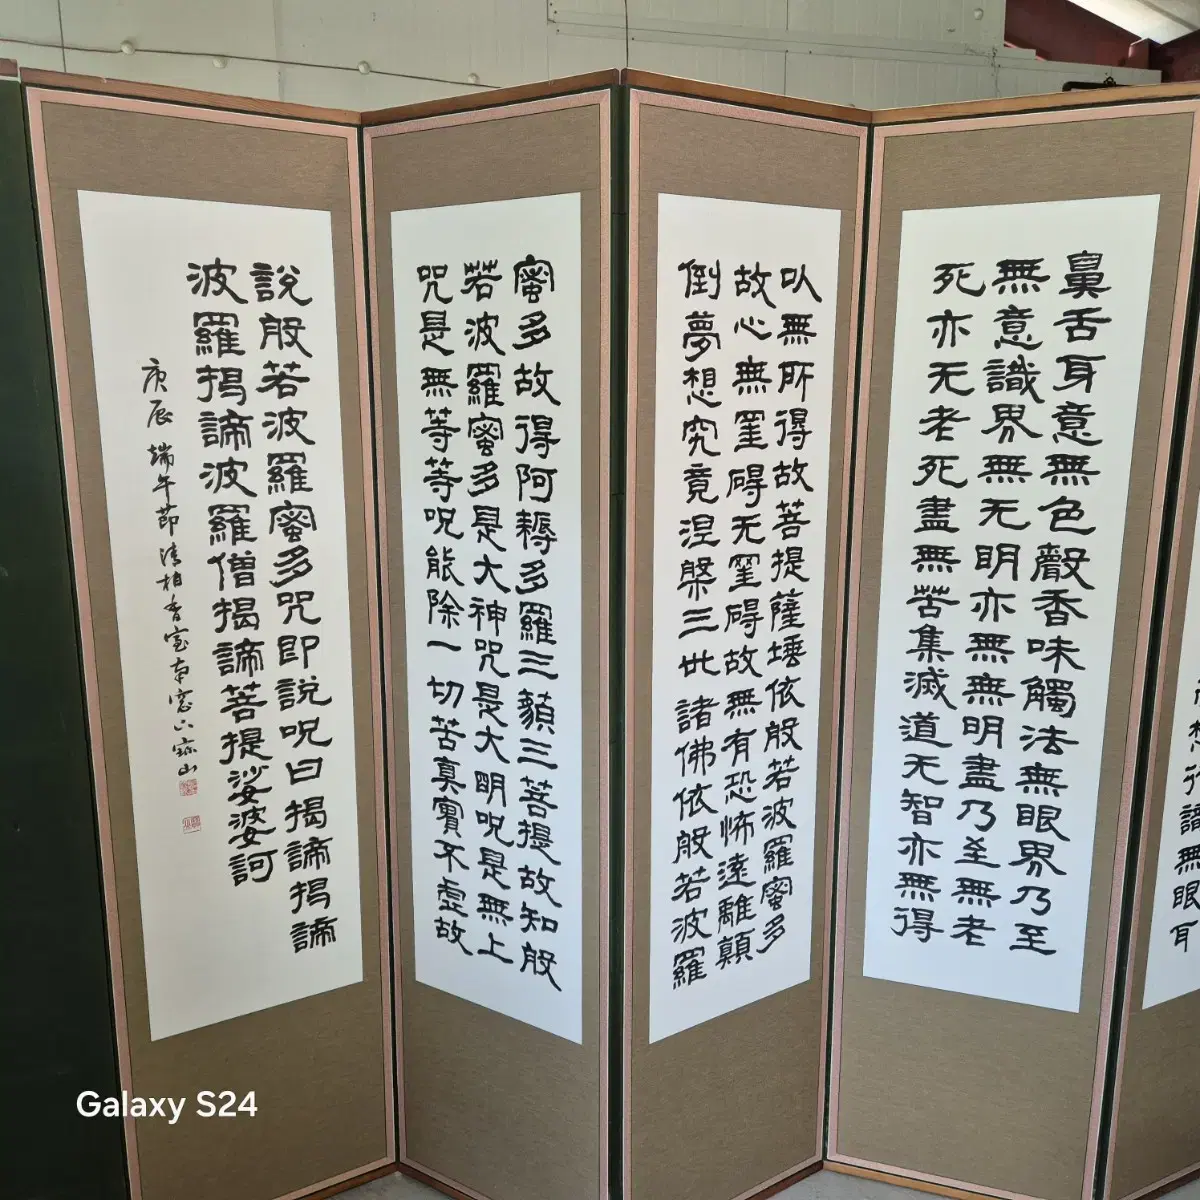 想行識無眼耳
鼻舌身意無色聲香味觸法無眼界乃至
無意識界無无明亦無無明盡乃至無老
死亦无老死盡無苦集滅道无智亦無得
以無所得故菩提薩埵依般若波羅蜜多
故心無罣碍无罣碍故無有恐怖遠離顛
倒夢想究竟涅槃三世諸佛依般若波羅
蜜多故得阿耨多羅三藐三菩提故知般
若波羅蜜多是大神呪是大明呪是無上
呪是無等等呪能除一切苦真實不虛故
說般若波羅蜜多呪即說呪曰揭諦揭諦
波羅揭諦波羅僧揭諦菩提娑婆訶
庚辰 端午節清柏香室南窓下 山
Galaxy S24